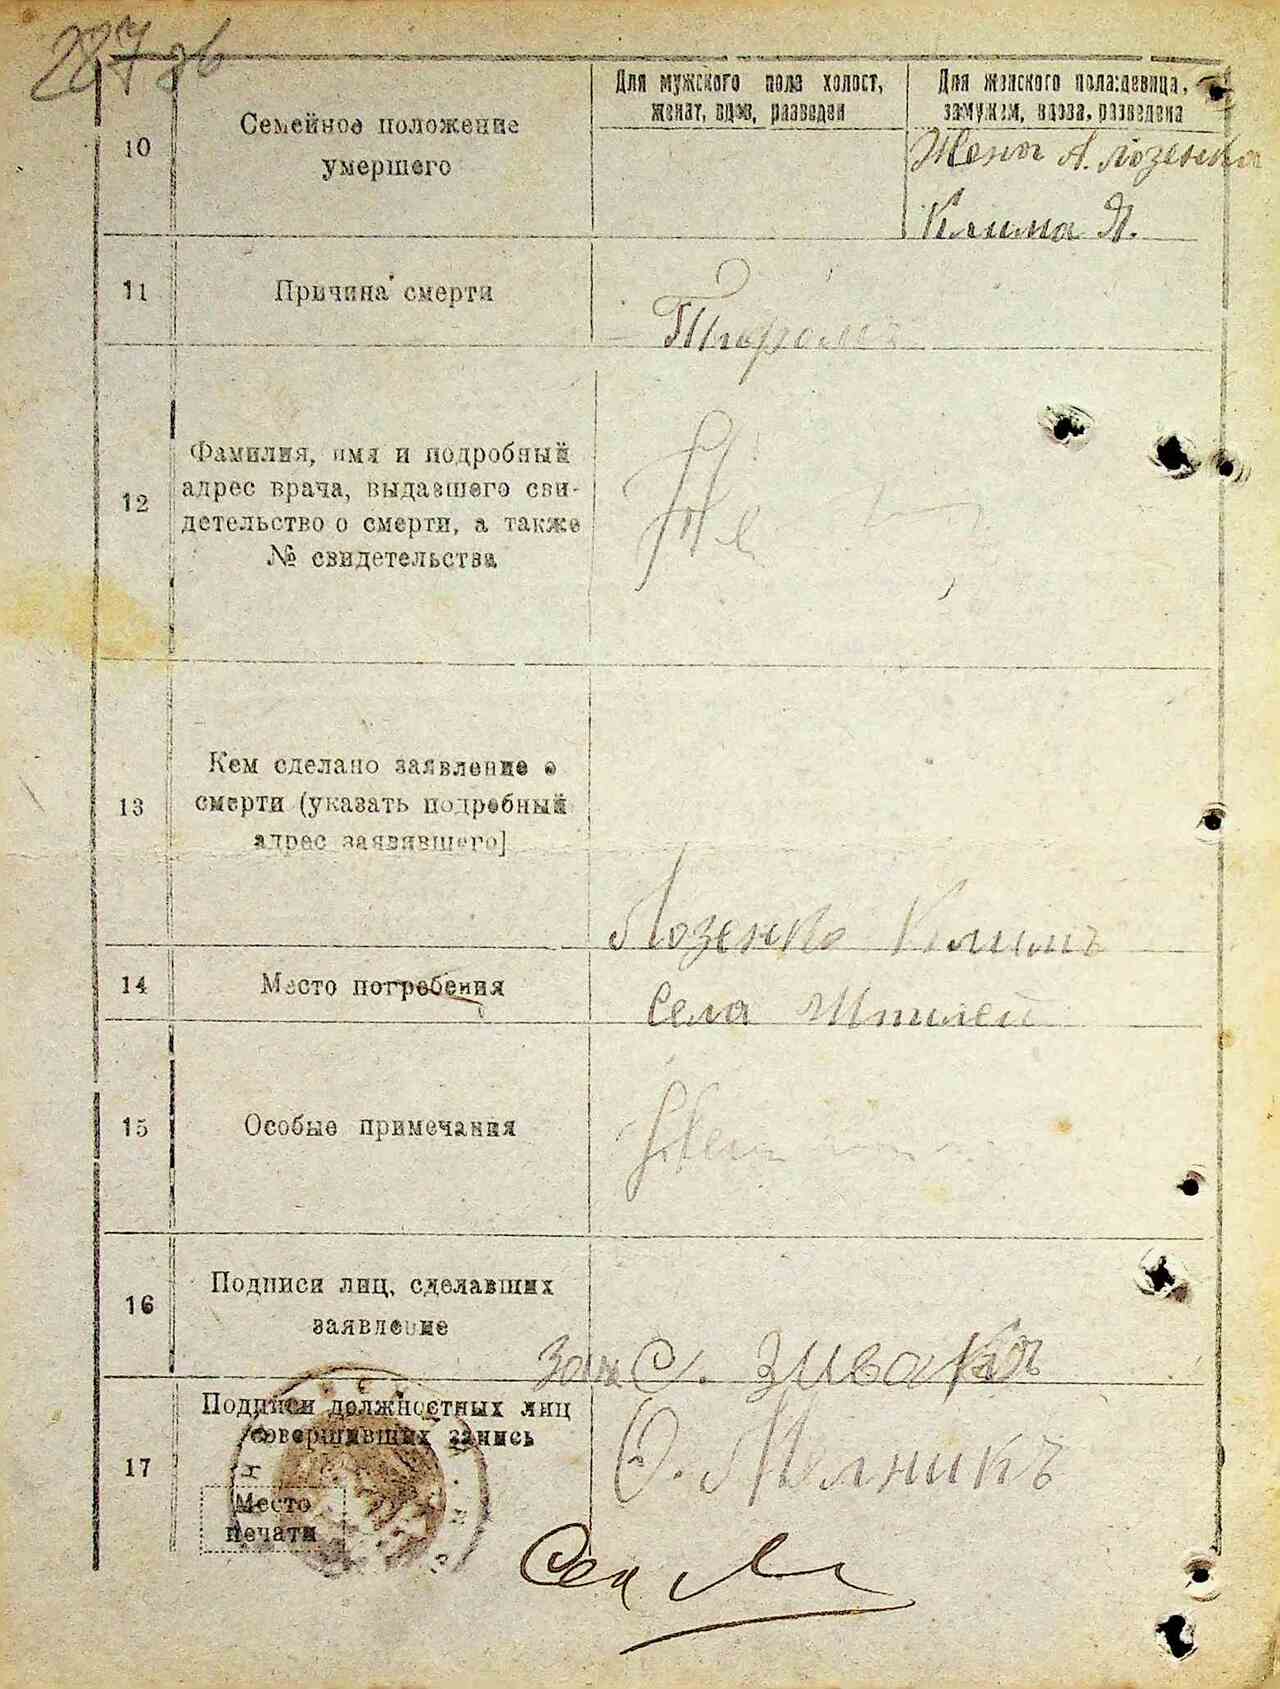 287 зв
10
Семейное положение
умершего
Для мужского пола холост,
женат, вдов, разведен
Для женского пола:девица,
замужем, вдова, разведена
Жена А. Лозенка
Клима Я.
11
Причина смерти
Тифомъ
12
Фамилия, имя и подробный
адрес врача, выдавшего сви-
детельство о смерти, а также
№ свидетельства
Не
13
Кем сделано заявление о
смерти (указать подробный
адрес заявившего]
Лозенко Климъ
14
Место погребения
Села Шпилей
15
Особые примечания
16
Подписи лиц, сделавших
заявление
С. Зивакъ
17
Подписи должностных лиц
совершивших запись
Место
печати
О. Мелникъ